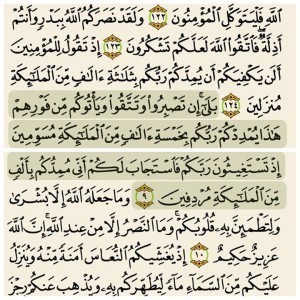 ٱللَّهِ فَلْيَتَوَكَّلِ ٱلْمُؤْمِنُونَ ١٢٢ وَلَقَدْ نَصَرَكُمُ ٱللَّهُ بِبَدْرٍ وَأَنتُمْ
أَذِلَّةٌ فَٱتَّقُوا۟ ٱللَّهَ لَعَلَّكُمْ تَشْكُرُونَ ١٢٣ إِذْ تَقُولُ لِلْمُؤْمِنِينَ
أَلَن يَكْفِيَكُمْ أَن يُمِدَّكُمْ رَبُّكُم بِثَلَٰثَةِ ءَالَٰفٍ مِّنَ ٱلْمَلَٰٓئِكَةِ
مُنزَلِينَ ١٢٤ بَلَىٰٓ إِن تَصْبِرُوا۟ وَتَتَّقُوا۟ وَيَأْتُوكُم مِّن فَوْرِهِمْ
هَٰذَا يُمْدِدْكُمْ رَبُّكُم بِخَمْسَةِ ءَالَٰفٍ مِّنَ ٱلْمَلَٰٓئِكَةِ مُسَوِّمِينَ
إِذْ تَسْتَغِيثُونَ رَبَّكُمْ فَٱسْتَجَابَ لَكُمْ أَنِّى مُمِدُّكُم بِأَلْفٍ
مِّنَ ٱلْمَلَٰٓئِكَةِ مُرْدِفِينَ ٩ وَمَا جَعَلَهُ ٱللَّهُ إِلَّا بُشْرَىٰ
وَلِتَطْمَئِنَّ بِهِۦ قُلُوبُكُمْ وَمَا ٱلنَّصْرُ إِلَّا مِنْ عِندِ ٱللَّهِ إِنَّ ٱللَّهَ
عَزِيزٌ حَكِيمٌ ١٠ إِذْ يُغَشِّيكُمُ ٱلنُّعَاسَ أَمَنَةً مِّنْهُ وَيُنَزِّلُ
عَلَيْكُم مِّنَ ٱلسَّمَآءِ مَآءً لِّيُطَهِّرَكُم بِهِۦ وَيُذْهِبَ عَنكُمْ رِجْزَ